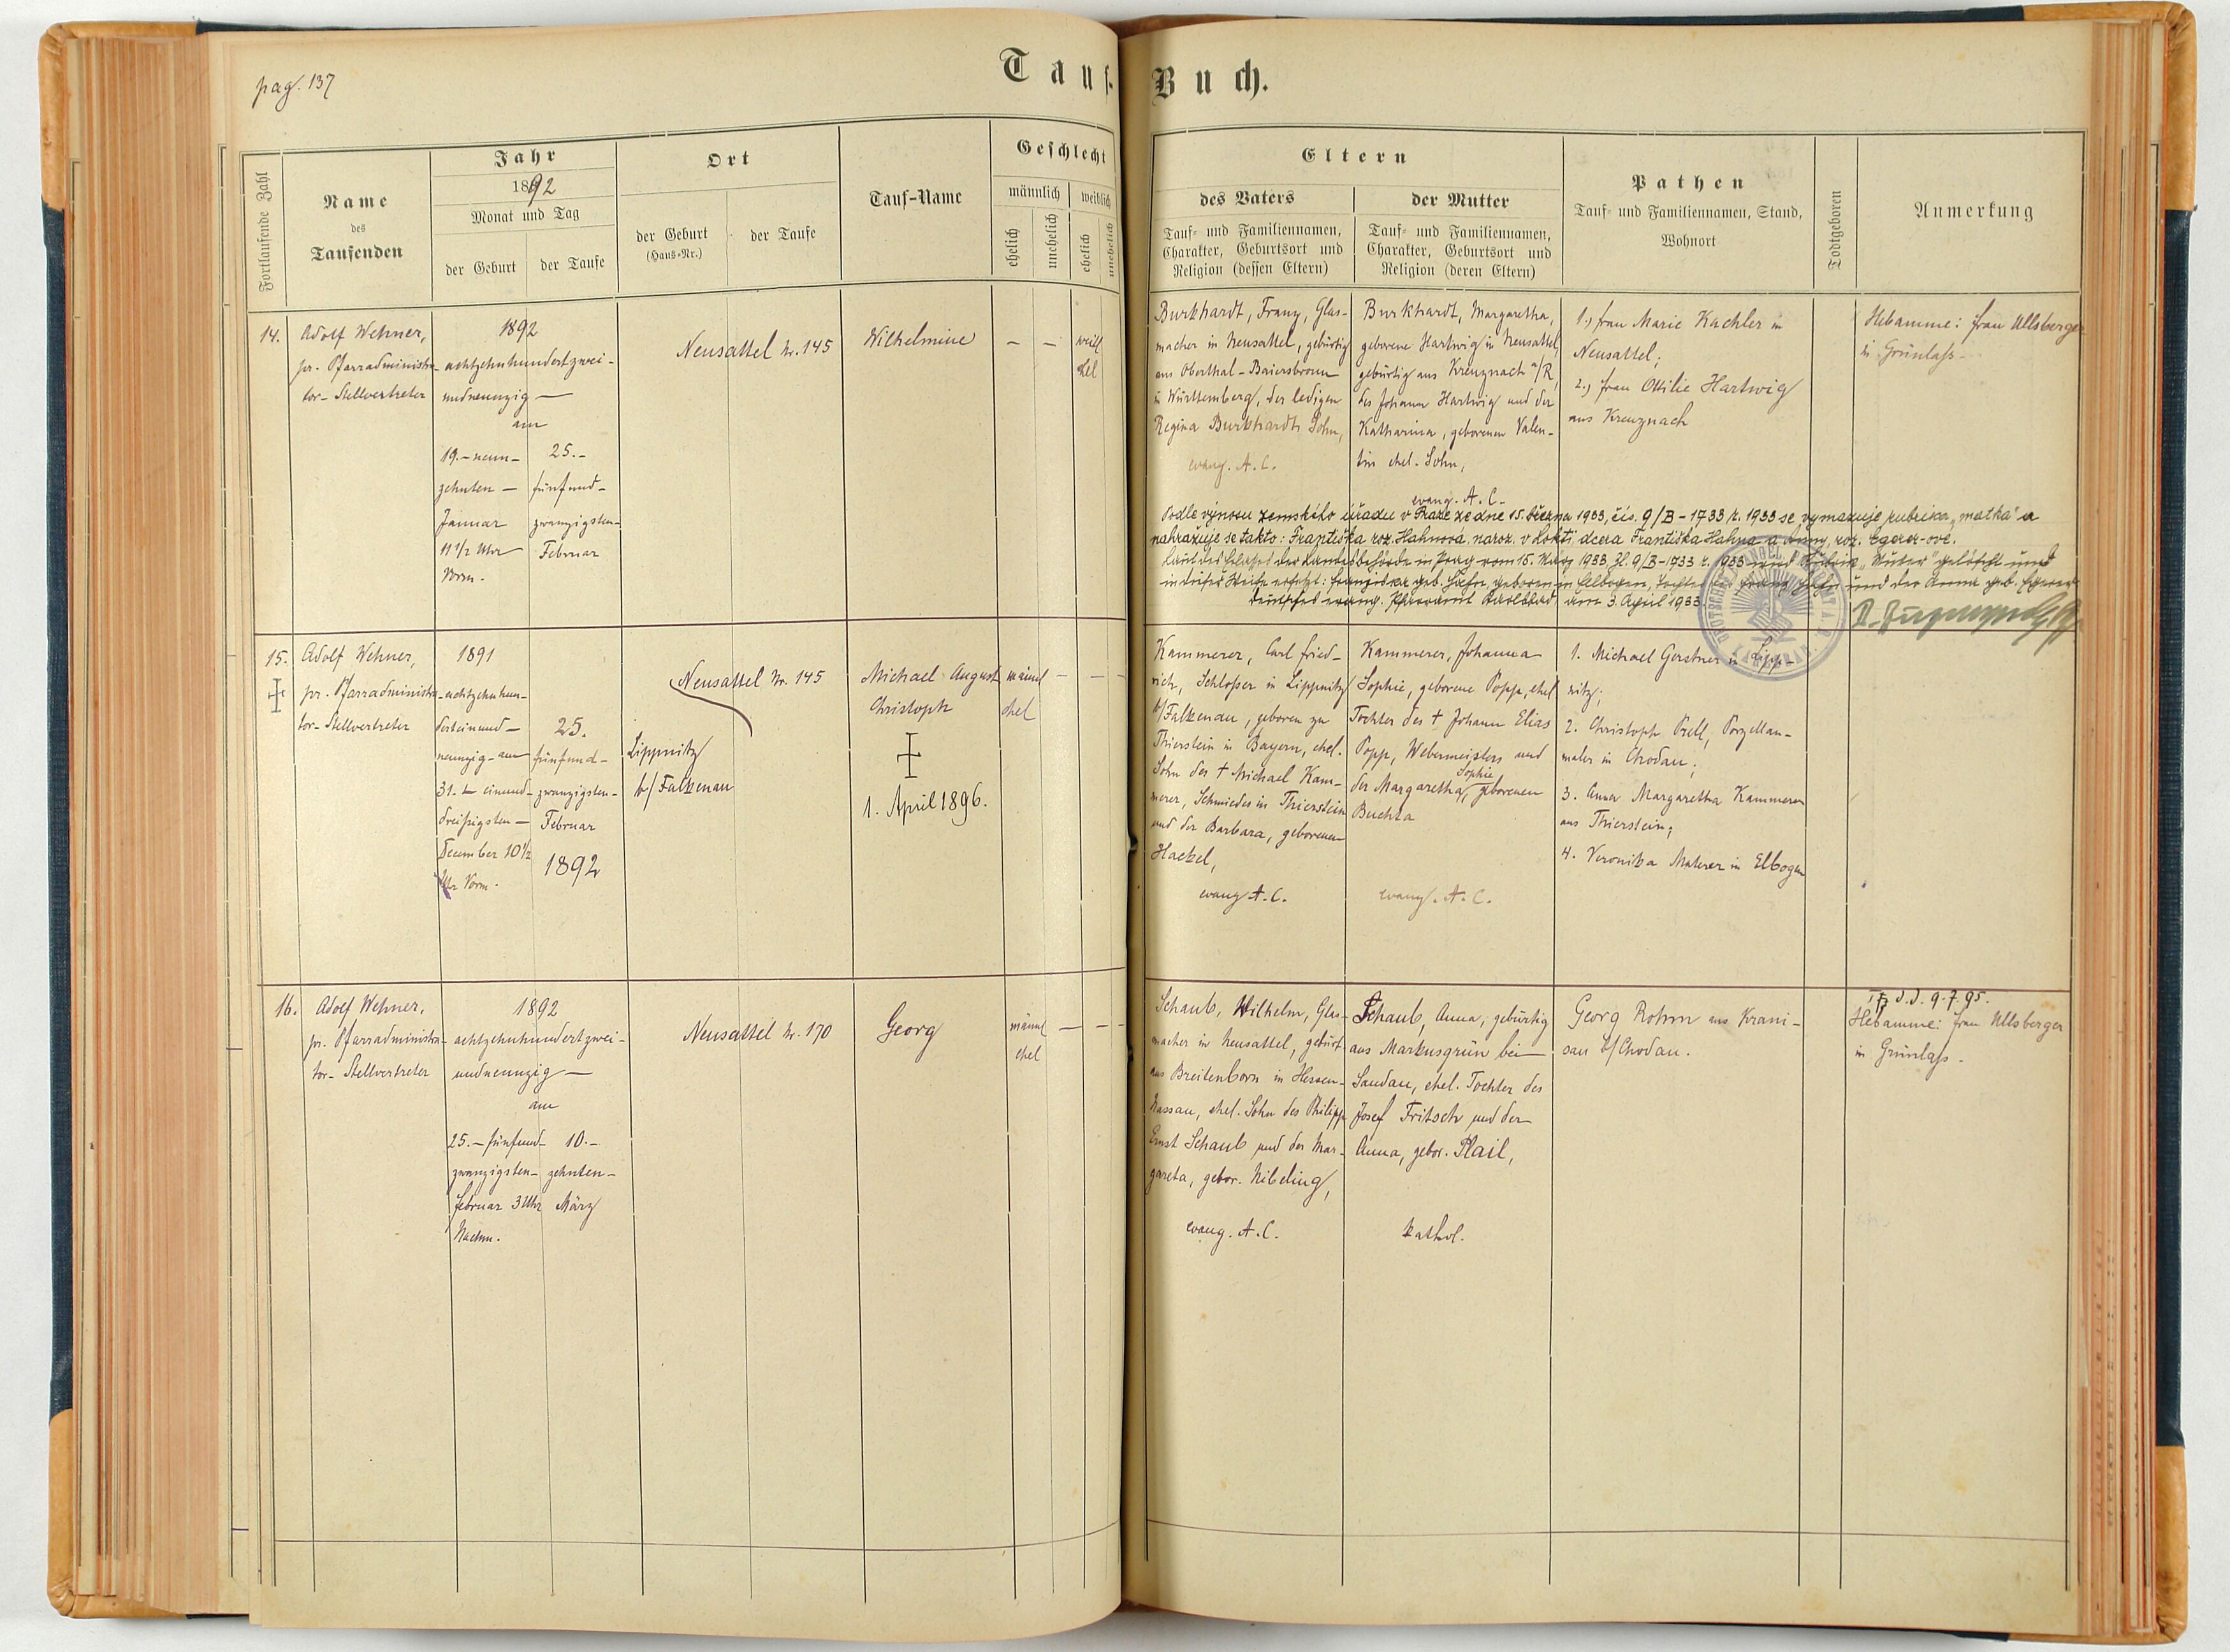 pag. 137
Tauf-Buch.
Fortlaufende Zahl
Name
des
Taufenden
Jahr
1892
Monat und Tag
der Geburt
der Taufe
Ort
der Geburt
(Haus-Nr.)
der Taufe
Tauf-Name
Geschlecht
männlich
weiblich
ehelich
unehelich
ehelich
unehelich
Eltern
des Vaters
Tauf- und Familiennamen,
Charakter, Geburtsort und
Religion (dessen Eltern)
der Mutter
Tauf- und Familiennamen,
Charakter, Geburtsort und
Religion (deren Eltern)
Pathen
Tauf- und Familiennamen, Stand,
Wohnort
Todtgeboren
Anmerkung
14.
Adolf Wehner,
pr. Pfarradministra-
tor-Stellvertreter
1892
achtzehnhundertzwei-
undneunzig —
am
19. - neun-
zehnten —
Januar
11 1/2 Uhr
Vorm.
25. -
fünfund-
zwanzigsten -
Februar
Neusattel Nr. 145
Wilhelmine
—
—
weibl
ehel
Burkhardt, Franz, Glas-
macher in Neusattel, gebürtig
aus Oberthal-Baiersbronn
in Württemberg, der ledigen
Regina Burkhardt Sohn,
evang. A. C.
Burkhardt, Margaretha,
geborene Hartwig in Neusattel,
gebürtig aus Kreuznach a/R,
des Johann Hartwig und der
Katharina, geborenen Valen-
tin ehel. Sohn,
evang. A. C.
1.) Frau Marie Kachler in
Neusattel;
2.) Frau Ottilie Hartwig
aus Kreuznach
Hebamme: Frau Ullsberger
in Grünlaß -
Podle výnosu zemského úřadu v Praze ze dne 15. března 1933, čís. 9/B - 1733 r. 1933 se vymazuje rubrika „matka" a
nahražuje se takto: Františka roz. Hahnová, naroz. v Lokti, dcera Františka Hahna a Anny, roz. Egerer-ové.
Laut des Erlasses der Landesbehörde in Prag vom 15. März 1933 Zl. 9/B-1733 r. 933 wird Rubrik „Mutter" gelöscht und
in dieser Weise ersetzt: Franziska geb. Hahn, geboren in Elbogen, Tochter des Franz Hahn und der Anna geb. Egerer
Deutsches evang. Pfarramt Karlsbad, am 3. April 1933.
15.
Adolf Wehner,
pr. Pfarradministra-
tor-Stellvertreter
1891
achtzehnhun-
derteinund-
neunzig - am
31. - einund-
dreißigsten —
December 10 1/2
Uhr Vorm.
25.
fünfund-
zwanzigsten -
Februar
1892
Neusattel Nr. 145
Lippnitz
b/Falkenau
Michael August
Christoph
1. April 1896.
männl
ehel
—
—
Kammerer, Carl Fried-
rich, Schloßer in Lippnitz
b/Falkenau, geboren zu
Thierstein in Bayern, ehel.
Sohn des † Michael Kam-
merer, Schmiedes in Thierstein
und der Barbara, geborenen
Hackel,
evang A. C.
Kammerer, Johanna
Sophie, geborene Popp, ehel
Tochter des † Johann Elias
Popp, Webermeisters und
der Margaretha Sophie, geborenen
Buchta
evang. A. C.
1. Michael Gerstner in Lipp-
nitz;
2. Christoph Prell, Porzellan-
maler in Chodau;
3. Anna Margaretha Kammerer
aus Thierstein;
4. Veronika Materer in Elbogen
16.
Adolf Wehner,
pr. Pfarradministra-
tor-Stellvertreter
1892
achtzehnhundertzwei-
undneunzig —
am
25. - fünfund-
zwanzigsten -
Februar 3 Uhr
Nachm.
10. -
zehnten -
März
Neusattel Nr. 170
Georg
männl
ehel
—
—
Schaub, Wilhelm, Glas-
macher in Neusattel, gebürt
aus Breitenborn in Hessen-
Nassau, ehel. Sohn des Philipp
Ernst Schaub und der Mar-
gareta, gebor. Nibeling,
evang. A. C.
Schaub, Anna, gebürtig
aus Markusgrün bei
Sandau, ehel. Tochter des
Josef Fritsch und der
Anna, gebor. Plail,
kathol.
Georg Rohm aus Krani-
sau b/Chodau.
d. d. 9.7.95.
Hebamme: Frau Ullsberger
in Grünlaß -